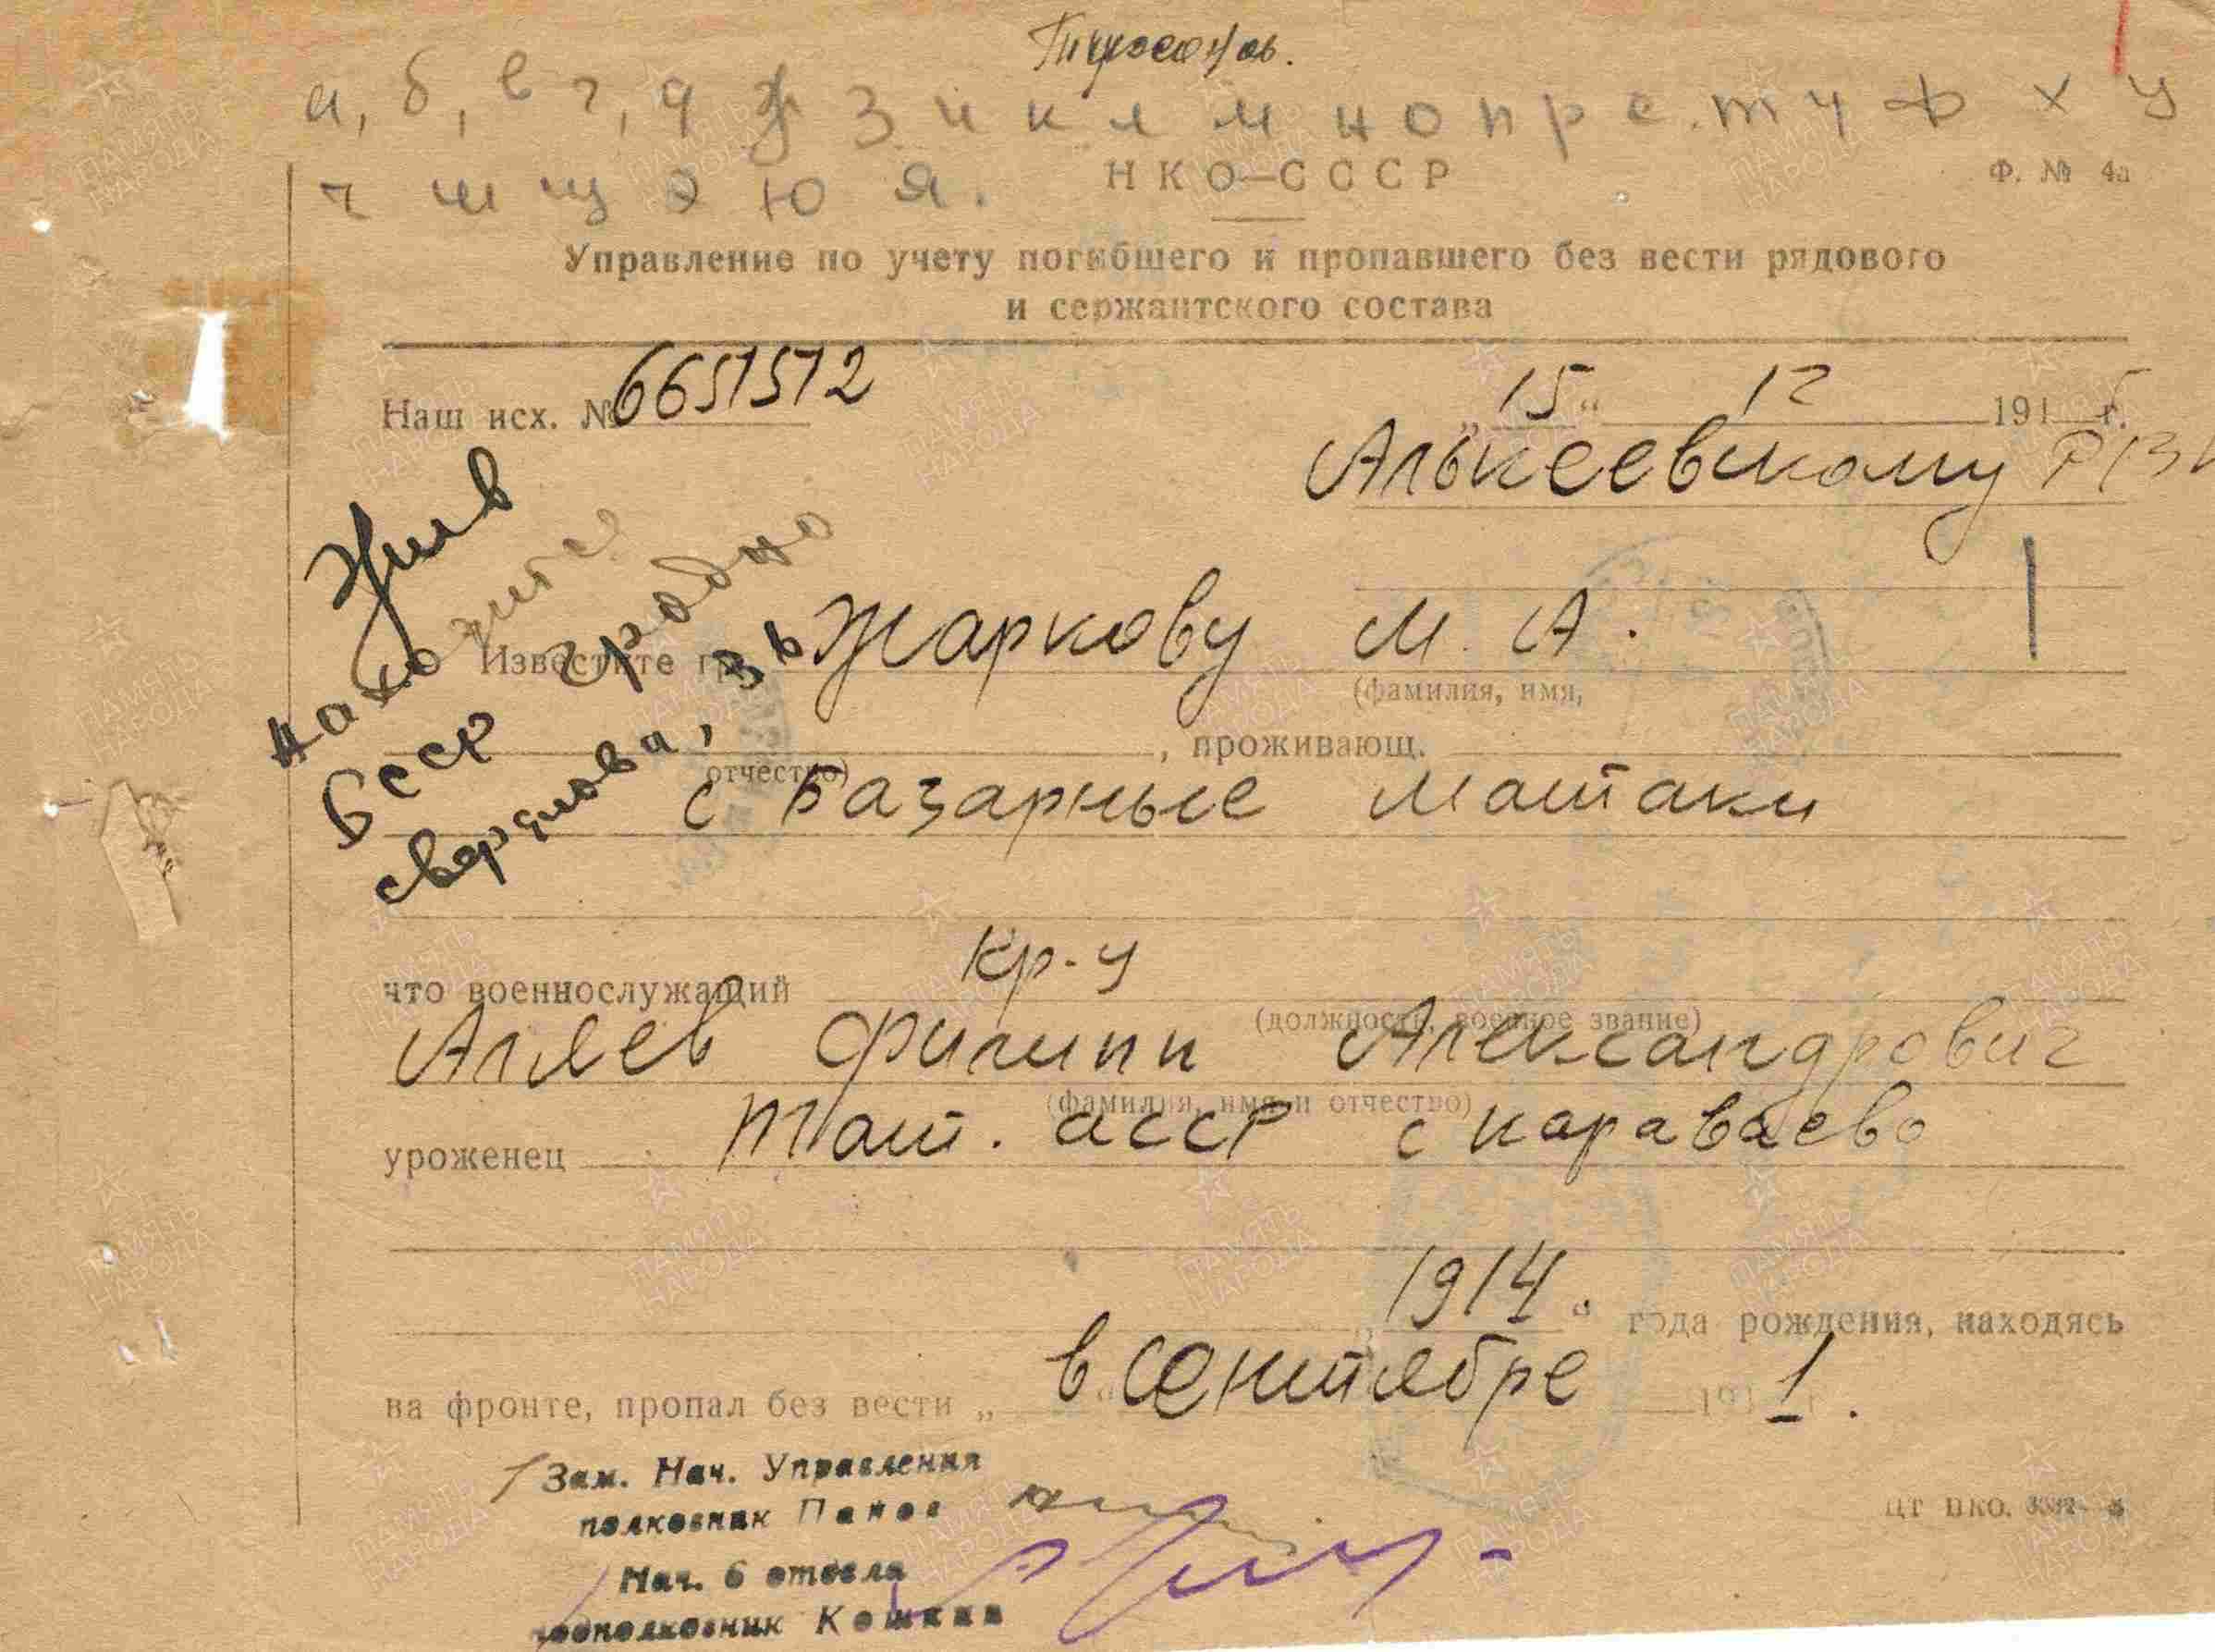 а, б, в г, д ж з и к л м н о п р с. т у ф х ц
ч ш щ э ю я.
НКО—СССР
Ф. № 4а
Управление по учету погибшего и пропавшего без вести рядового
и сержантского состава
Наш исх. № 6651512
„15“ 12 194 г.
Алькеевскому РВК
Жив
находится
БССР Гродно
Свердлова,
Известите гр. Жаркову М. А.
(фамилия, имя,
, проживающ.
отчество)
с Базарные Матаки
что военнослужащий кр-ц
(должность, военное звание)
Агляев Филипп Александрович
(фамилия, имя и отчество)
уроженец Тат. АССР с Караваево
„1914“ года рождения, находясь
на фронте, пропал без вести „ “ в сентябре 1941 г.
Зам. Нач. Управления
полковник Панов
Нач. 6 отдела
подполковник Кошкин